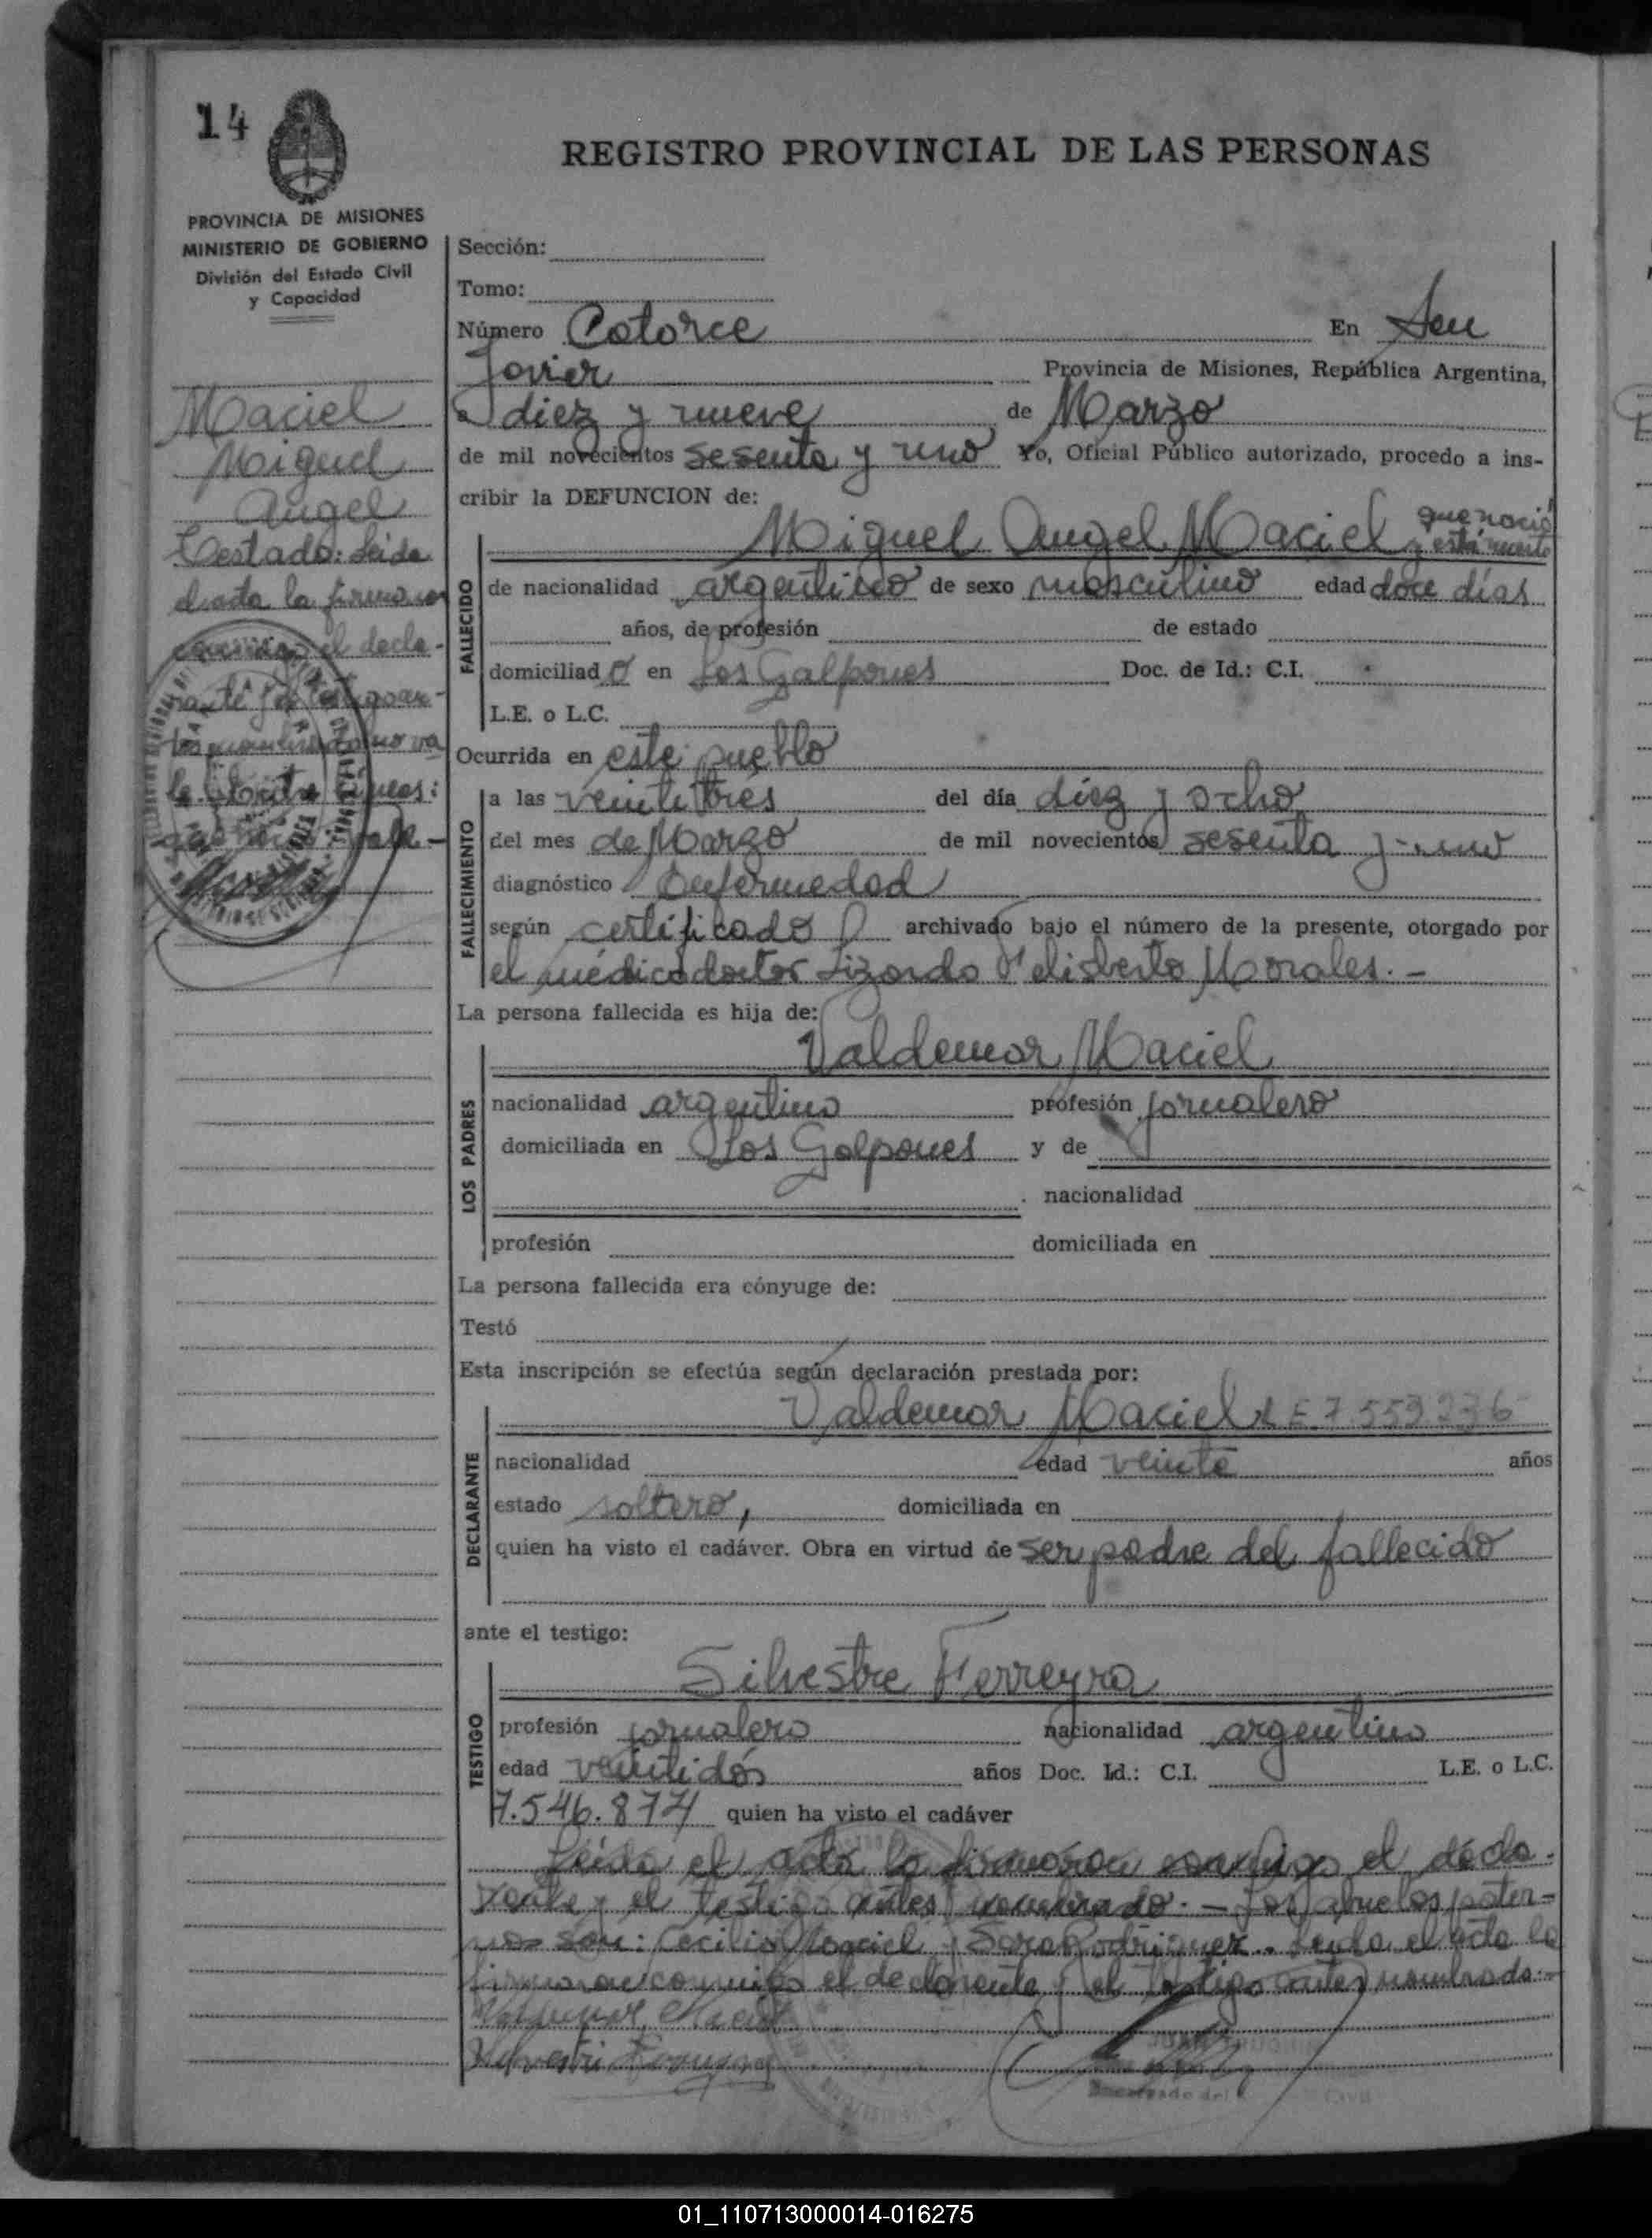 14
REGISTRO PROVINCIAL DE LAS PERSONAS
PROVINCIA DE MISIONES
MINISTERIO DE GOBIERNO
División del Estado Civil
y Capacidad
Maciel
Miguel
Angel
Testado: Leida
el acta la firmaron
conmigo el decla-
rante y el testigo an-
tes nombrado no va
le. Entre líneas:
vale -
Sección:
Tomo:
Número Catorce En San
Javier Provincia de Misiones, República Argentina,
a diez y nueve de Marzo
de mil novecientos sesenta y uno Yo, Oficial Público autorizado, procedo a ins-
cribir la DEFUNCION de:
que nació
Miguel Angel Maciel y está muerto
FALLECIDO
de nacionalidad argentino de sexo masculino edad doce días
años, de profesión de estado
domiciliad o en Los Galpones Doc. de Id.: C.I.
L.E. o L.C.
Ocurrida en este pueblo
FALLECIMIENTO
a las veintitrés del día diez y ocho
del mes de Marzo de mil novecientos sesenta y uno
diagnóstico Enfermedad
según certificado archivado bajo el número de la presente, otorgado por
el médico doctor Lizardo Felisberto Morales. -
La persona fallecida es hija de:
LOS PADRES
Valdemar Maciel
nacionalidad argentino profesión jornalero
domiciliada en Los Galpones y de
nacionalidad
profesión domiciliada en
La persona fallecida era cónyuge de:
Testó
Esta inscripción se efectúa según declaración prestada por:
DECLARANTE
Valdemar Maciel L E 7.559.236
nacionalidad edad veinte años
estado soltero, domiciliada en
quien ha visto el cadáver. Obra en virtud de ser padre del fallecido
ante el testigo:
TESTIGO
Silvestre Ferreyra
profesión jornalero nacionalidad argentino
edad veintidós años Doc. Id.: C.I. L.E. o L.C.
7.546.874 quien ha visto el cadáver
Leida el acta la firmaron conmigo el decla-
rante y el testigo antes nombrado. - Los abuelos pater-
nos son: Cecilio Maciel y Sara Rodriguez. Leida el acta la
firmaron conmigo el declarante y el testigo antes nombrado.-
Valdemar Maciel
Silvestre Ferreyra
Encargado del Civil
01_110713000014-016275